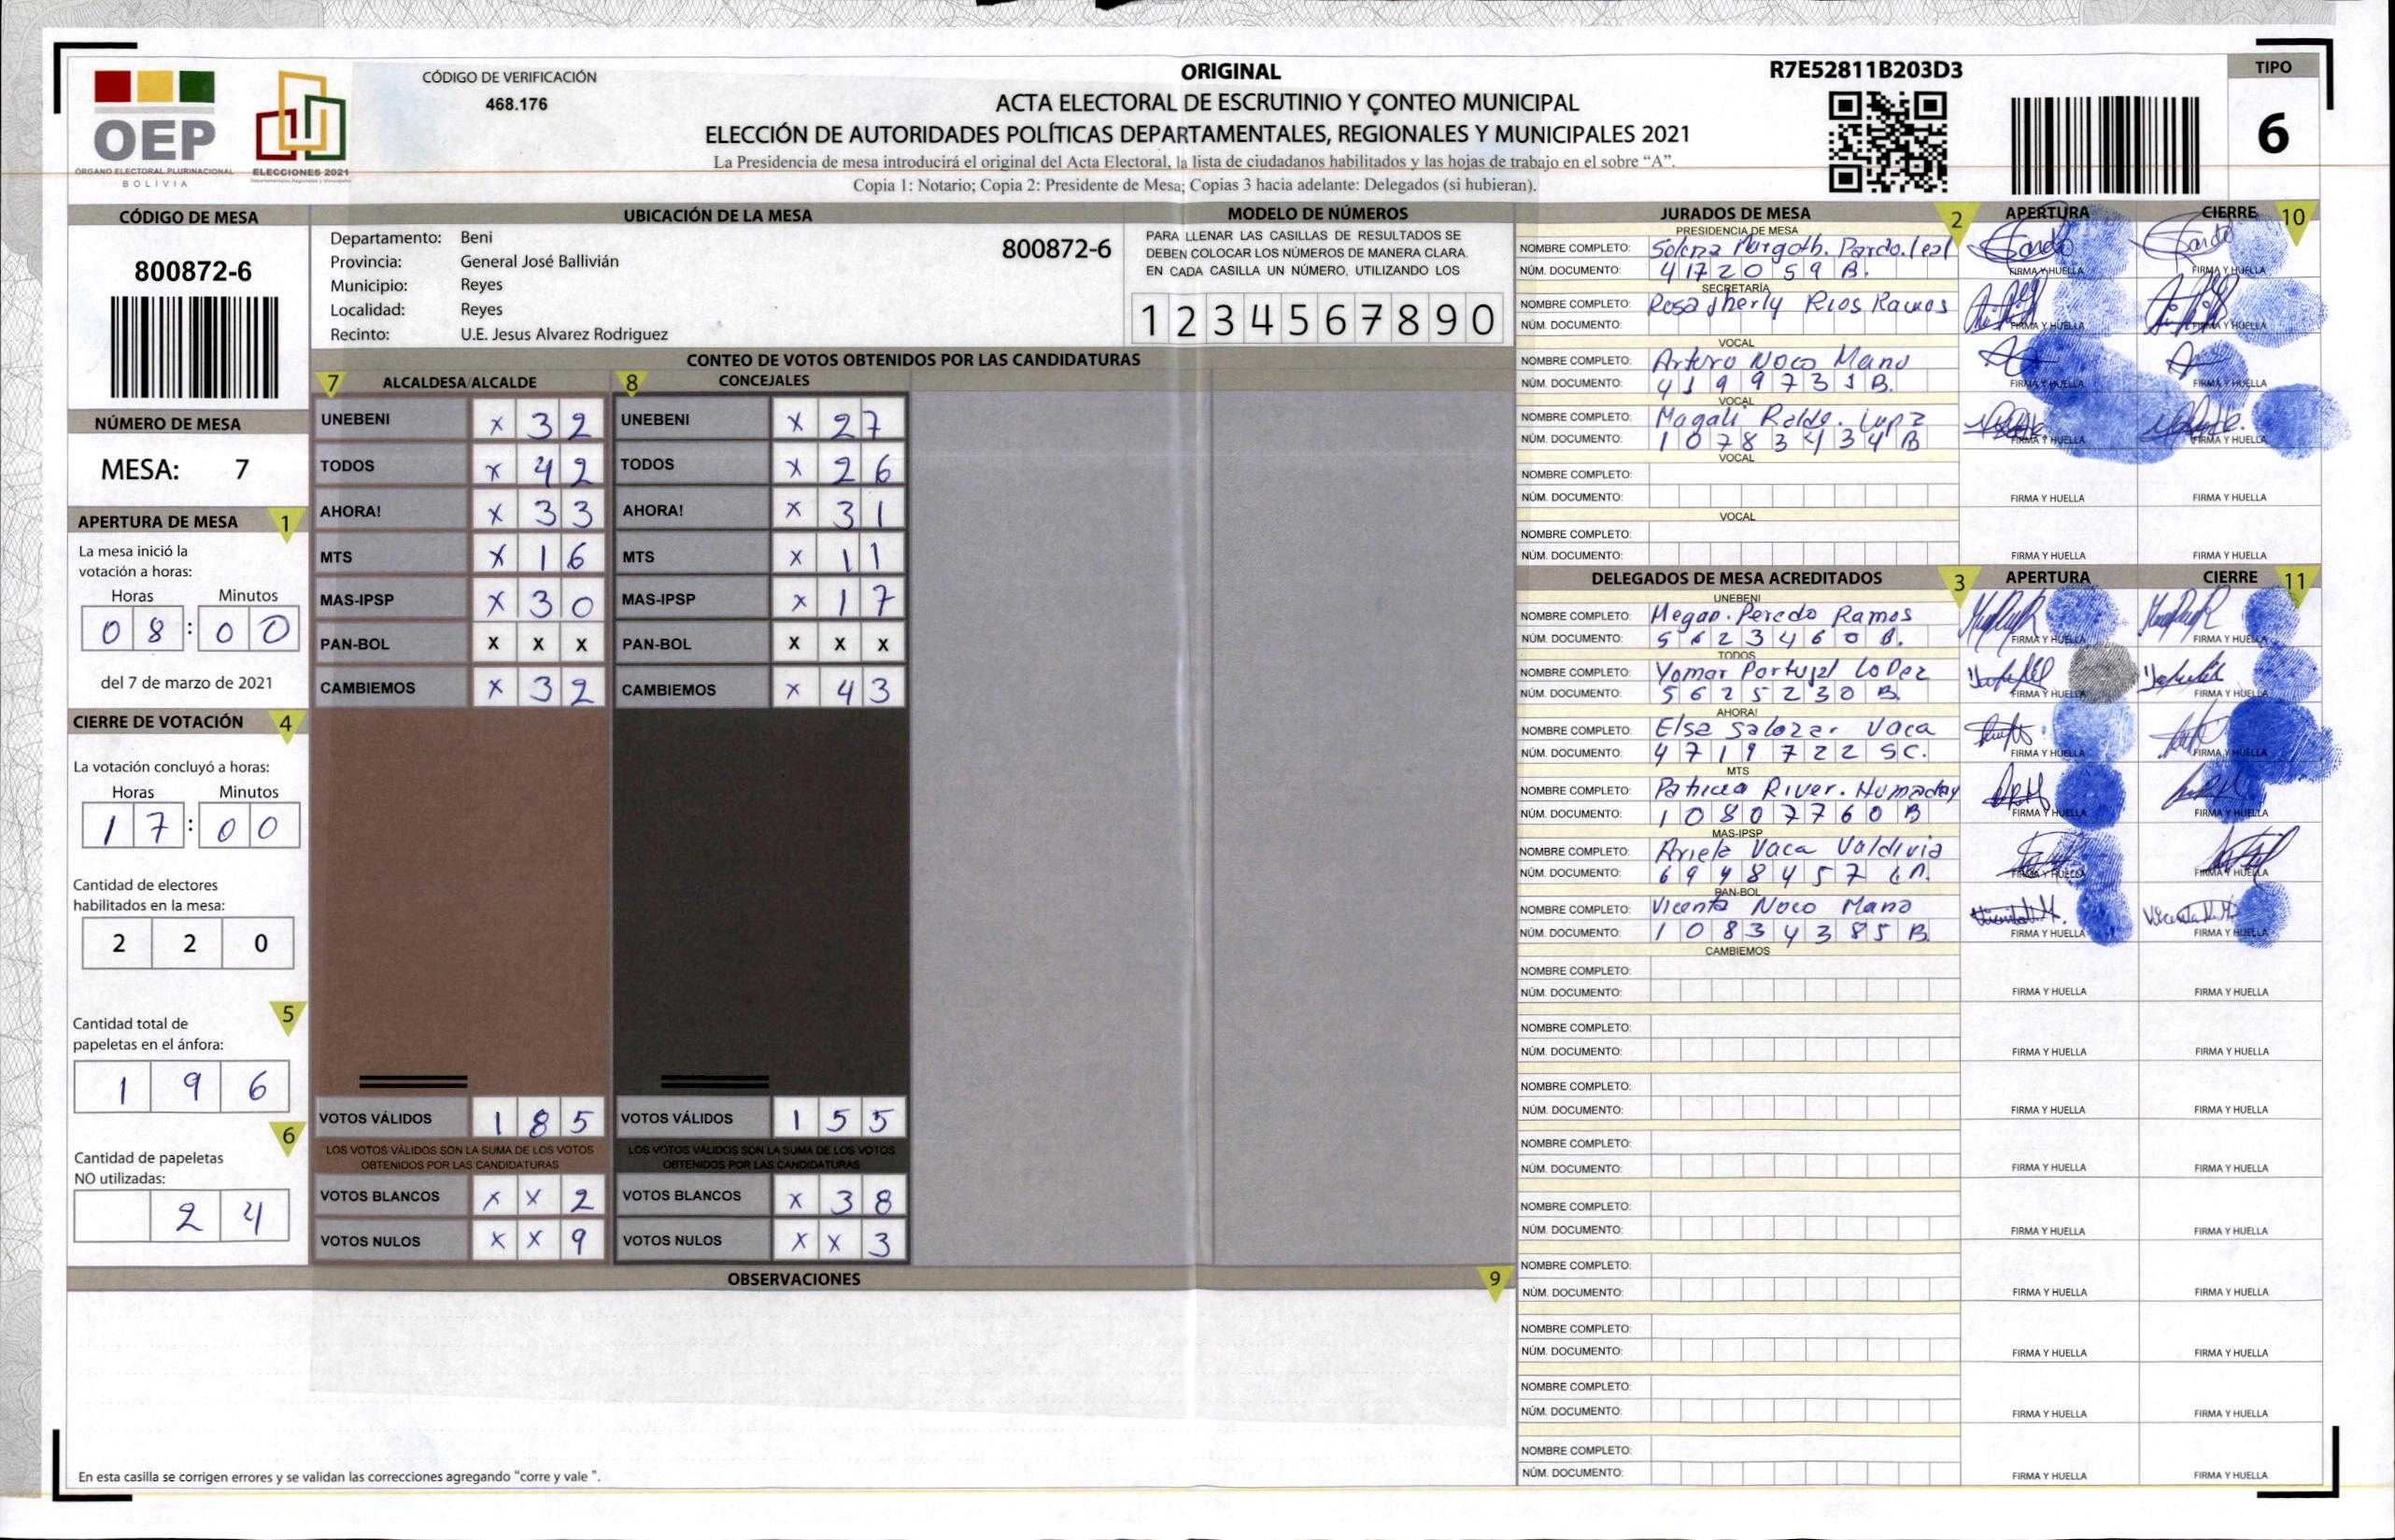 CÓDIGO DE VERIFICACIÓN
468.176
ORIGINAL
ACTA ELECTORAL DE ESCRUTINIO Y CONTEO MUNICIPAL
ELECCIÓN DE AUTORIDADES POLÍTICAS DEPARTAMENTALES, REGIONALES Y MUNICIPALES 2021
La Presidencia de mesa introducirá el original del Acta Electoral, la lista de ciudadanos habilitados y las hojas de trabajo en el sobre “A”.
Copia 1: Notario; Copia 2: Presidente de Mesa; Copias 3 hacia adelante: Delegados (si hubieran).
R7E52811B203D3
TIPO
6
OEP
ÓRGANO ELECTORAL PLURINACIONAL
BOLIVIA
ELECCIONES 2021
CÓDIGO DE MESA
800872-6
NÚMERO DE MESA
MESA: 7
APERTURA DE MESA 1
La mesa inició la
votación a horas:
Horas Minutos
0 8 : 0 0
del 7 de marzo de 2021
CIERRE DE VOTACIÓN 4
La votación concluyó a horas:
Horas Minutos
1 7 : 0 0
Cantidad de electores
habilitados en la mesa:
2 2 0
5
Cantidad total de
papeletas en el ánfora:
1 9 6
6
Cantidad de papeletas
NO utilizadas:
2 4
UBICACIÓN DE LA MESA
Departamento: Beni
Provincia: General José Ballivián
Municipio: Reyes
Localidad: Reyes
Recinto: U.E. Jesus Alvarez Rodriguez
800872-6
MODELO DE NÚMEROS
PARA LLENAR LAS CASILLAS DE RESULTADOS SE
DEBEN COLOCAR LOS NÚMEROS DE MANERA CLARA.
EN CADA CASILLA UN NÚMERO, UTILIZANDO LOS
1 2 3 4 5 6 7 8 9 0
CONTEO DE VOTOS OBTENIDOS POR LAS CANDIDATURAS
7 ALCALDESA/ALCALDE
UNEBENI x 3 2
TODOS x 4 2
AHORA! x 3 3
MTS x 1 6
MAS-IPSP x 3 0
PAN-BOL X X X
CAMBIEMOS x 3 2
VOTOS VÁLIDOS 1 8 5
LOS VOTOS VÁLIDOS SON LA SUMA DE LOS VOTOS
OBTENIDOS POR LAS CANDIDATURAS
VOTOS BLANCOS x x 2
VOTOS NULOS x x 9
8 CONCEJALES
UNEBENI x 2 7
TODOS x 2 6
AHORA! x 3 1
MTS x 1 1
MAS-IPSP x 1 7
PAN-BOL X X X
CAMBIEMOS x 4 3
VOTOS VÁLIDOS 1 5 5
LOS VOTOS VÁLIDOS SON LA SUMA DE LOS VOTOS
OBTENIDOS POR LAS CANDIDATURAS
VOTOS BLANCOS x 3 8
VOTOS NULOS x x 3
OBSERVACIONES 9
En esta casilla se corrigen errores y se validan las correcciones agregando "corre y vale ".
JURADOS DE MESA 2 APERTURA CIERRE 10
PRESIDENCIA DE MESA
NOMBRE COMPLETO: Margoth. Pardo. Leal
NÚM. DOCUMENTO: 4172059 B.
FIRMA Y HUELLA FIRMA Y HUELLA
SECRETARÍA
NOMBRE COMPLETO: Rosa Jherly Rios Ramos
NÚM. DOCUMENTO:
FIRMA Y HUELLA FIRMA Y HUELLA
VOCAL
NOMBRE COMPLETO: Arturo Noco Mano
NÚM. DOCUMENTO: 4199731 B.
FIRMA Y HUELLA FIRMA Y HUELLA
VOCAL
NOMBRE COMPLETO: Magali
NÚM. DOCUMENTO: 10783434 B
FIRMA Y HUELLA FIRMA Y HUELLA
VOCAL
NOMBRE COMPLETO:
NÚM. DOCUMENTO:
FIRMA Y HUELLA FIRMA Y HUELLA
VOCAL
NOMBRE COMPLETO:
NÚM. DOCUMENTO:
FIRMA Y HUELLA FIRMA Y HUELLA
DELEGADOS DE MESA ACREDITADOS 3 APERTURA CIERRE 11
UNEBENI
NOMBRE COMPLETO: Megan. Peredo Ramos
NÚM. DOCUMENTO: 5623460 B.
FIRMA Y HUELLA FIRMA Y HUELLA
TODOS
NOMBRE COMPLETO: Yomar Portugal Lopez
NÚM. DOCUMENTO: 5625230 B.
FIRMA Y HUELLA FIRMA Y HUELLA
AHORA!
NOMBRE COMPLETO: Elsa Salazar Vaca
NÚM. DOCUMENTO: 4719722 SC.
FIRMA Y HUELLA FIRMA Y HUELLA
MTS
NOMBRE COMPLETO: Patricia River. Humaday
NÚM. DOCUMENTO: 10807760 B
FIRMA Y HUELLA FIRMA Y HUELLA
MAS-IPSP
NOMBRE COMPLETO: Ariela Vaca Valdivia
NÚM. DOCUMENTO: 6998457
FIRMA Y HUELLA FIRMA Y HUELLA
PAN-BOL
NOMBRE COMPLETO: Vicenta Noco Mano
NÚM. DOCUMENTO: 10834385 B.
FIRMA Y HUELLA FIRMA Y HUELLA
CAMBIEMOS
NOMBRE COMPLETO:
NÚM. DOCUMENTO:
FIRMA Y HUELLA FIRMA Y HUELLA
NOMBRE COMPLETO:
NÚM. DOCUMENTO:
FIRMA Y HUELLA FIRMA Y HUELLA
NOMBRE COMPLETO:
NÚM. DOCUMENTO:
FIRMA Y HUELLA FIRMA Y HUELLA
NOMBRE COMPLETO:
NÚM. DOCUMENTO:
FIRMA Y HUELLA FIRMA Y HUELLA
NOMBRE COMPLETO:
NÚM. DOCUMENTO:
FIRMA Y HUELLA FIRMA Y HUELLA
NOMBRE COMPLETO:
NÚM. DOCUMENTO:
FIRMA Y HUELLA FIRMA Y HUELLA
NOMBRE COMPLETO:
NÚM. DOCUMENTO:
FIRMA Y HUELLA FIRMA Y HUELLA
NOMBRE COMPLETO:
NÚM. DOCUMENTO:
FIRMA Y HUELLA FIRMA Y HUELLA
NOMBRE COMPLETO:
NÚM. DOCUMENTO:
FIRMA Y HUELLA FIRMA Y HUELLA